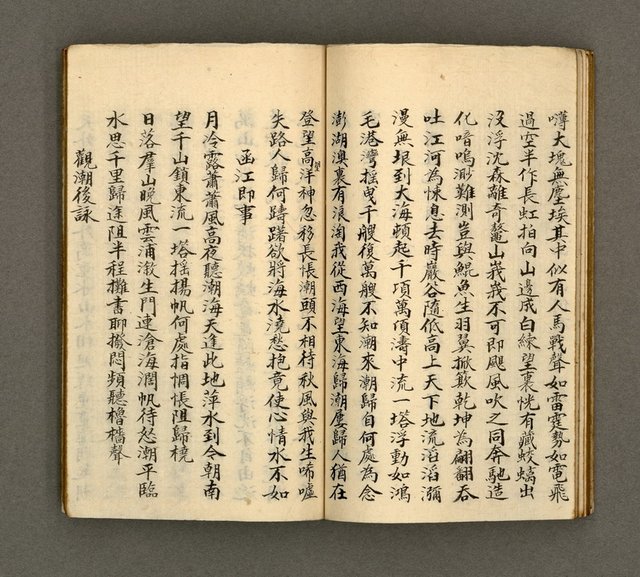 嘷大塊無塵埃其中似有人馬戰聲如雷霆勢如電飛
過空半作長虹拍向山邊成白練望裏恍有藏蛟螭出
沒浮沈森離奇鼇山峩峩不可即颶風吹之同奔馳造
化喑嗚渺難測豈與鯤魚生羽翼掀歕乾坤為翩翻吞
吐江河為悚息去時巖谷隨低高上天下地流滔滔瀰
漫無垠到大海頓起千項萬項濤中流一塔浮動如鴻
毛港灣搖曳千艘復萬艘不知潮來潮歸自何處為念
澎湖澳裏有浪淘我從西海望東海歸潮屢歸人猶在
登望高洋神忽移長悵潮頭不相待秋風與我生唏噓
失路人歸何躊躇欲將海水澆愁抱竟使心情水不如
函江即事
月冷露蕭蕭風高夜聽潮海天逢此地萍水到今朝南
望千山鎖東流一塔搖揚帆何處指惆悵阻歸橈
日落羣山晚風雲浦漵生門連滄海濶帆待怒潮平臨
水思千里歸途阻半程攤書聊撥悶頻聽櫓檣聲
觀潮後詠